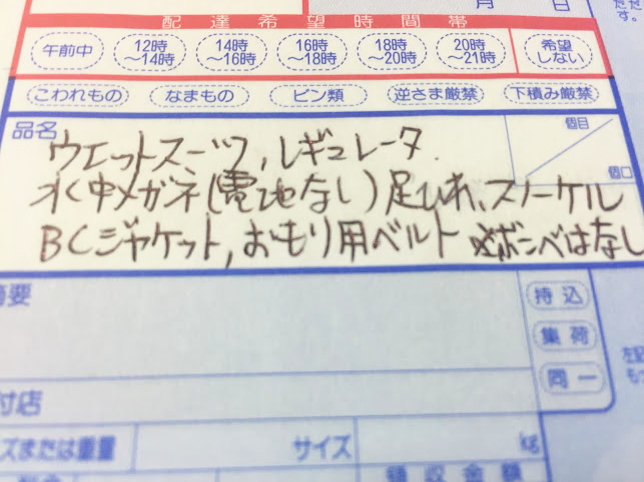 月 日
配達希望時間帯
午前中 12時～14時 14時～16時 16時～18時 18時～20時 20時～21時 希望しない
こわれもの なまもの ビン類 逆さま厳禁 下積み厳禁
品名 個目
個口
ウエットスーツ, レギュレータ.
水中メガネ(電池なし)足ひれ、スノーケル
BCジャケット, おもり用ベルト ※ボンベはなし
摘要
持込
集荷
同一
付店
ズまたは重量 サイズ kg
領収金額